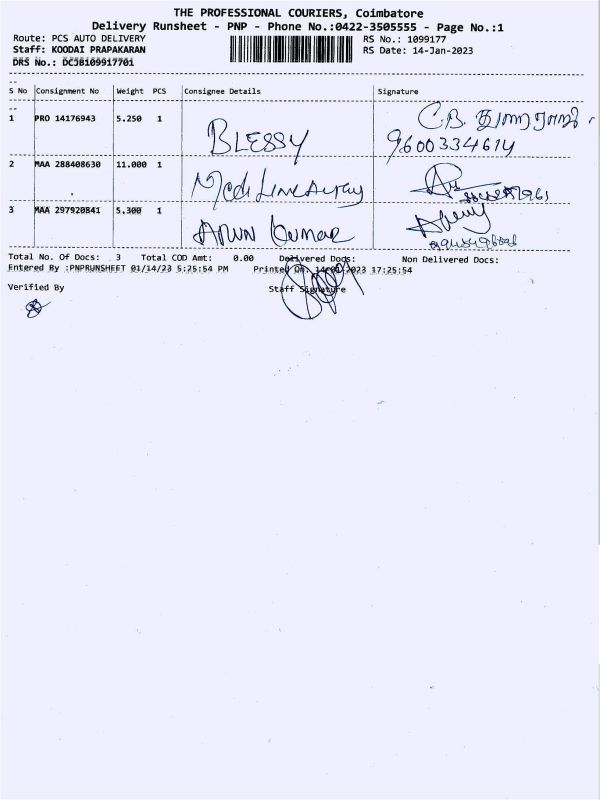 THE PROFESSIONAL COURIERS, Coimbatore
Delivery Runsheet - PNP - Phone No.:0422-3505555 - Page No.:1
Route: PCS AUTO DELIVERY
RS No.: 1099177
Staff: KOODAI PRAPAKARAN
RS Date: 14-Jan-2023
DRS No.: DCJB109917701
S No Consignment No Weight PCS Consignee Details Signature
1 PRO 14176943 5.250 1
C.B.
BLESSY 9600334614
2 MAA 288408630 11.000 1
3 MAA 297920841 5.300 1
ARUN Kumar
Total No. Of Docs: 3 Total COD Amt: 0.00 Delivered Docs: Non Delivered Docs:
Entered By :PNPRUNSHEET 01/14/23 5:25:54 PM Printed On: 14-01-2023 17:25:54
Verified By Staff Signature